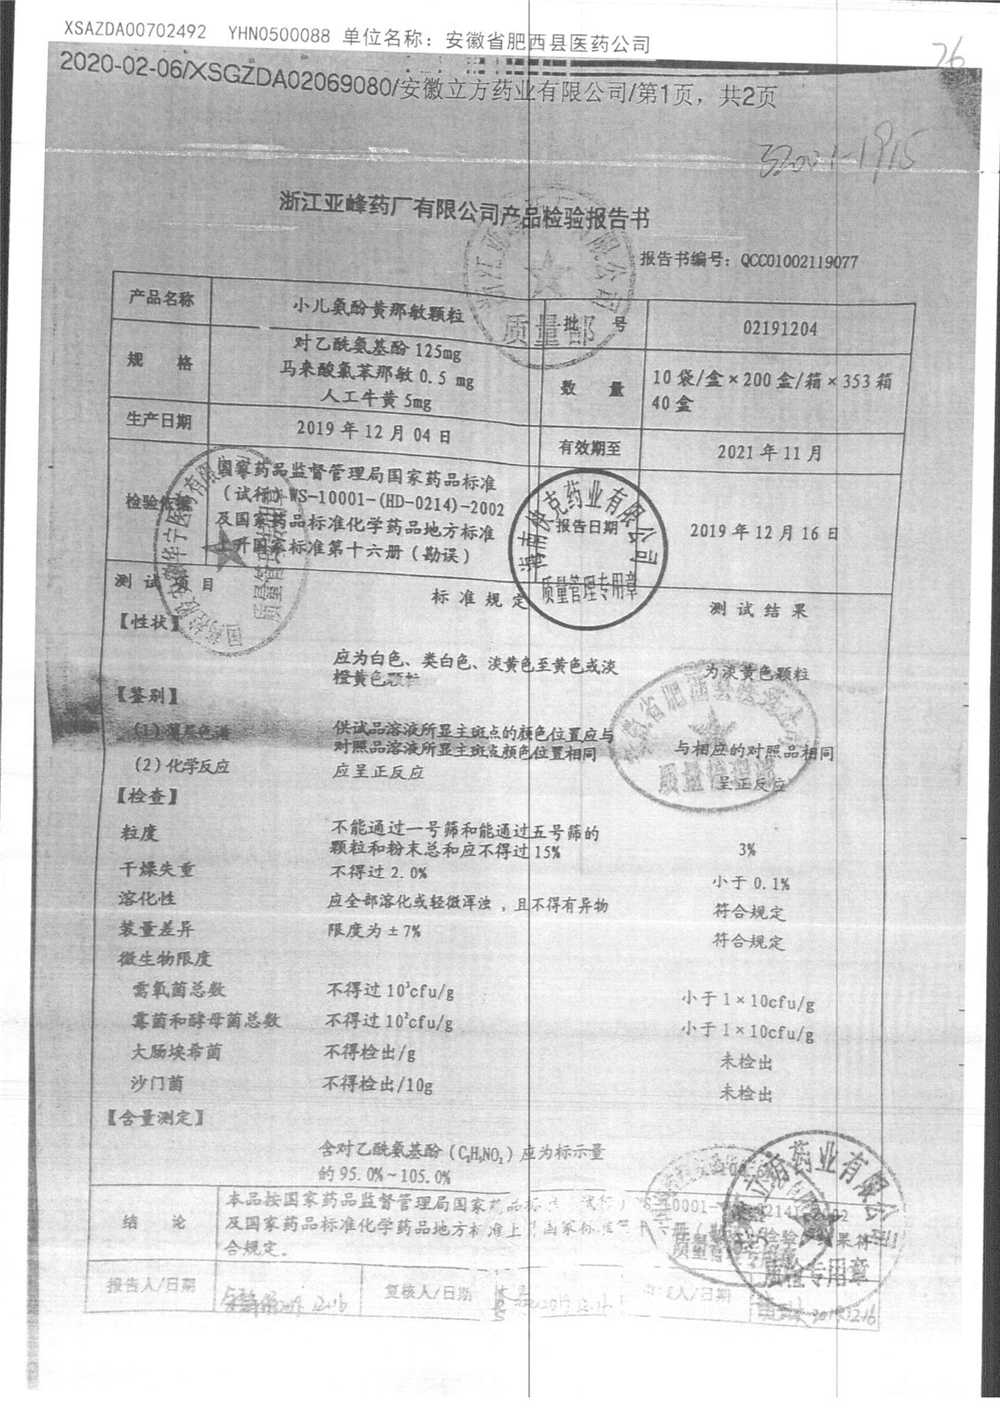 XSAZDA00702492 YHN0500088 单位名称：安徽省肥西县医药公司
2020-02-06/XSGZDA02069080/安徽立方药业有限公司/第1页，共2页
26
浙江亚峰药厂有限公司产品检验报告书
报告书编号：QCC01002119077
产品名称 小儿氨酚黄那敏颗粒 批 号 02191204
规 格 对乙酰氨基酚 125mg
马来酸氯苯那敏 0.5 mg
人工牛黄 5mg
数 量 10 袋/盒×200 盒/箱×353 箱
40 盒
生产日期 2019 年 12 月 04 日 有效期至 2021 年 11 月
检验依据 国家药品监督管理局国家药品标准
（试行）WS-10001-(HD-0214)-2002
及国家药品标准化学药品地方标准
上升国家标准第十六册（勘误）
报告日期 2019 年 12 月 16 日
测 试 项 目 标 准 规 定 测 试 结 果
【性状】
应为白色、类白色、淡黄色至黄色或淡
橙黄色颗粒
为淡黄色颗粒
【鉴别】
(1)薄层色谱 供试品溶液所显主斑点的颜色位置应与
对照品溶液所显主斑点颜色位置相同
与相应的对照品相同
(2)化学反应 应呈正反应 呈正反应
【检查】
粒度 不能通过一号筛和能通过五号筛的
颗粒和粉末总和应不得过 15% 3%
干燥失重 不得过 2.0% 小于 0.1%
溶化性 应全部溶化或轻微浑浊，且不得有异物 符合规定
装量差异 限度为±7% 符合规定
微生物限度
需氧菌总数 不得过 10³cfu/g 小于 1×10cfu/g
霉菌和酵母菌总数 不得过 10²cfu/g 小于 1×10cfu/g
大肠埃希菌 不得检出/g 未检出
沙门菌 不得检出/10g 未检出
【含量测定】
含对乙酰氨基酚（C₈H₉NO₂）应为标示量
的 95.0%~105.0%
结 论 本品按国家药品监督管理局国家药品标
及国家药品标准化学药品地方标准上
合规定。
报告人/日期 复核人/日期 人/日期
质量部
海南快克药业有限公司
质量管理专用章
质量管理部
立方药业有限公司
质检专用章